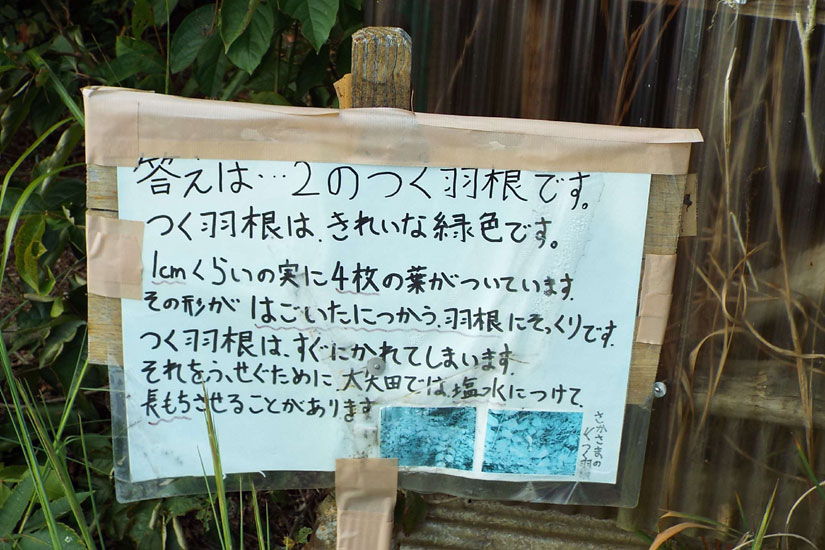 答えは…2のつく羽根です。
つく羽根は、きれいな緑色です。
1cmくらいの実に4枚の葉がついています。
その形が はごいたにつかう、羽根にそっくりです。
つく羽根は、すぐにかれてしまいます。
それをふせぐために、大矢田では、塩水につけて、
長もちさせることがあります
さかさまの
つく羽